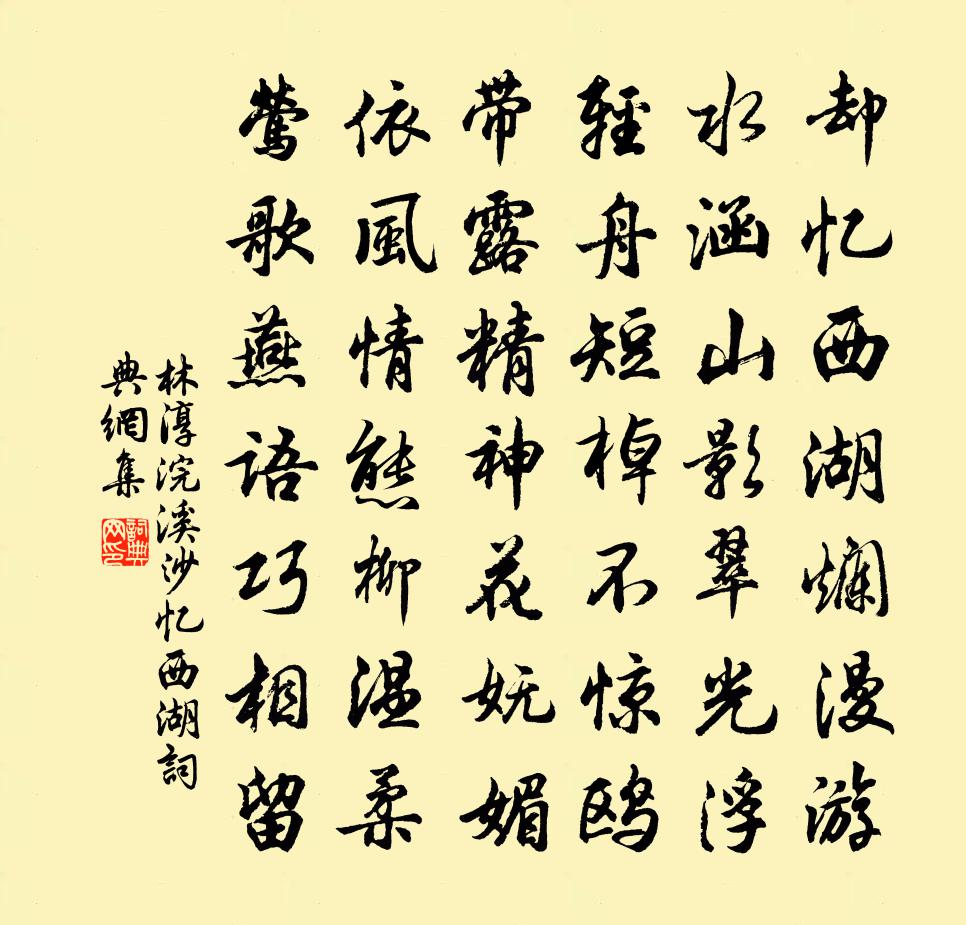 却忆西湖烂漫游
水涵山影翠光浮
輕舟短棹不惊鸥
带露精神花妩媚
依風情態柳温柔
莺歌燕语巧相留
林淳浣溪沙忆西湖詞
典網集
詞典网印